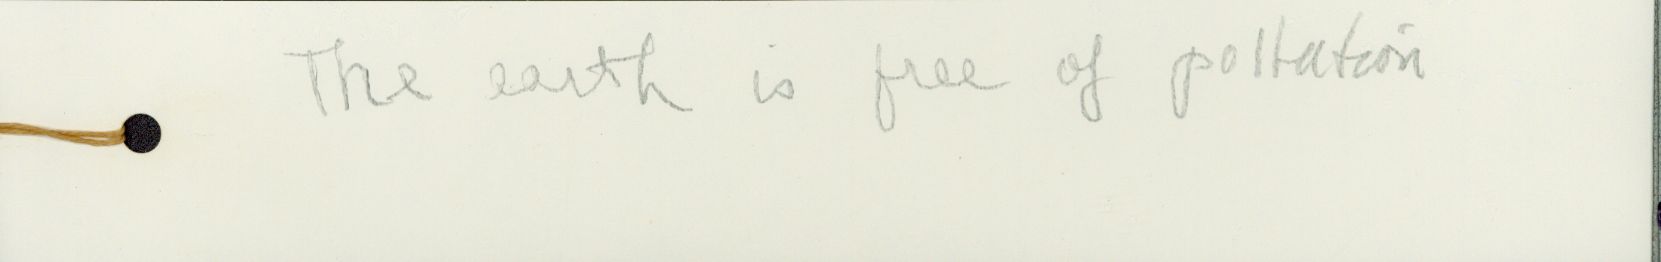 The earth is free of pollution